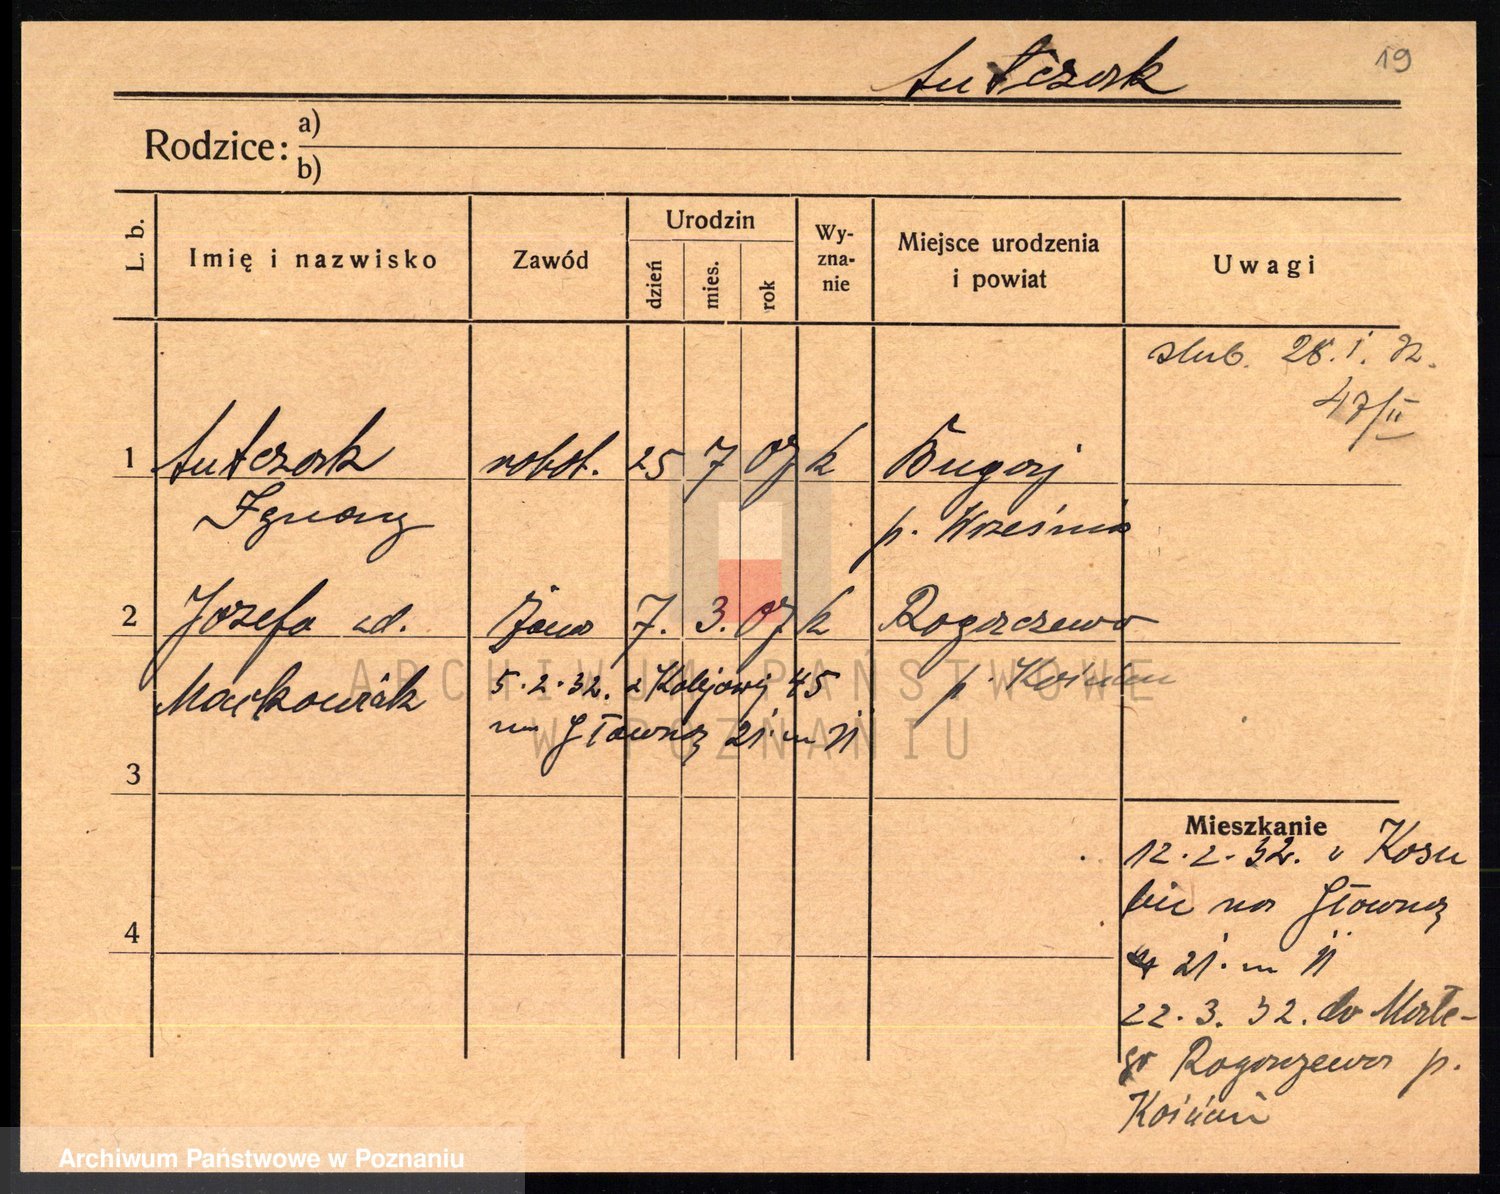 Antczak
19
Rodzice: a)
b)
L. b.
Imię i nazwisko
Zawód
Urodzin
dzień
mies.
rok
Wy-
zna-
nie
Miejsce urodzenia
i powiat
Uwagi
ślub. 28. I. 32.
47/II
1 Antczak robot. 25 7 07 k Bugaj
Ignacy p. Września
2 Józefa żona 7. 3. 07 k Rogaczewo
Markowiak 5.2.32. z Kolejowej 45 p. Kościan
na Główną 21. m 11
3
Mieszkanie
12.2.32.
na Główną
21. m 11
22.3.32. do Małe-
go Rogaczewa p.
Kościan
4
ARCHIWUM PAŃSTWOWE
W POZNANIU
Archiwum Państwowe w Poznaniu